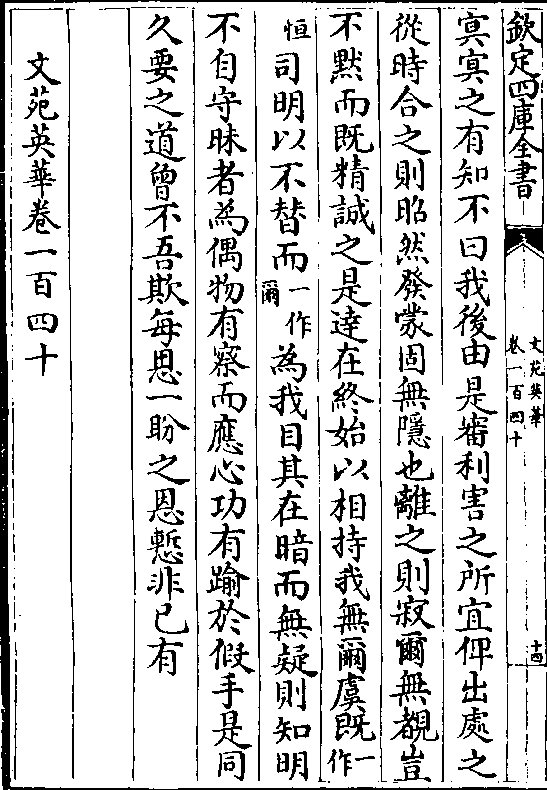 欽定四庫全書
文苑英華
卷一百四十
十四
㝠㝠之有知不曰我後由是審利害之所宜仰出處之
從時合之則昭然發蒙固無隱也離之則寂爾無覩豈
不黙而既精誠之是達在終始以相持我無爾虞既一作
恒司明以不替而一作爾為我目其在暗而無疑則知明
不自守昧者為偶物有察而應心功有踰於假手是同
久要之道曾不吾欺每思一盼之恩慙非已有
文苑英華卷一百四十